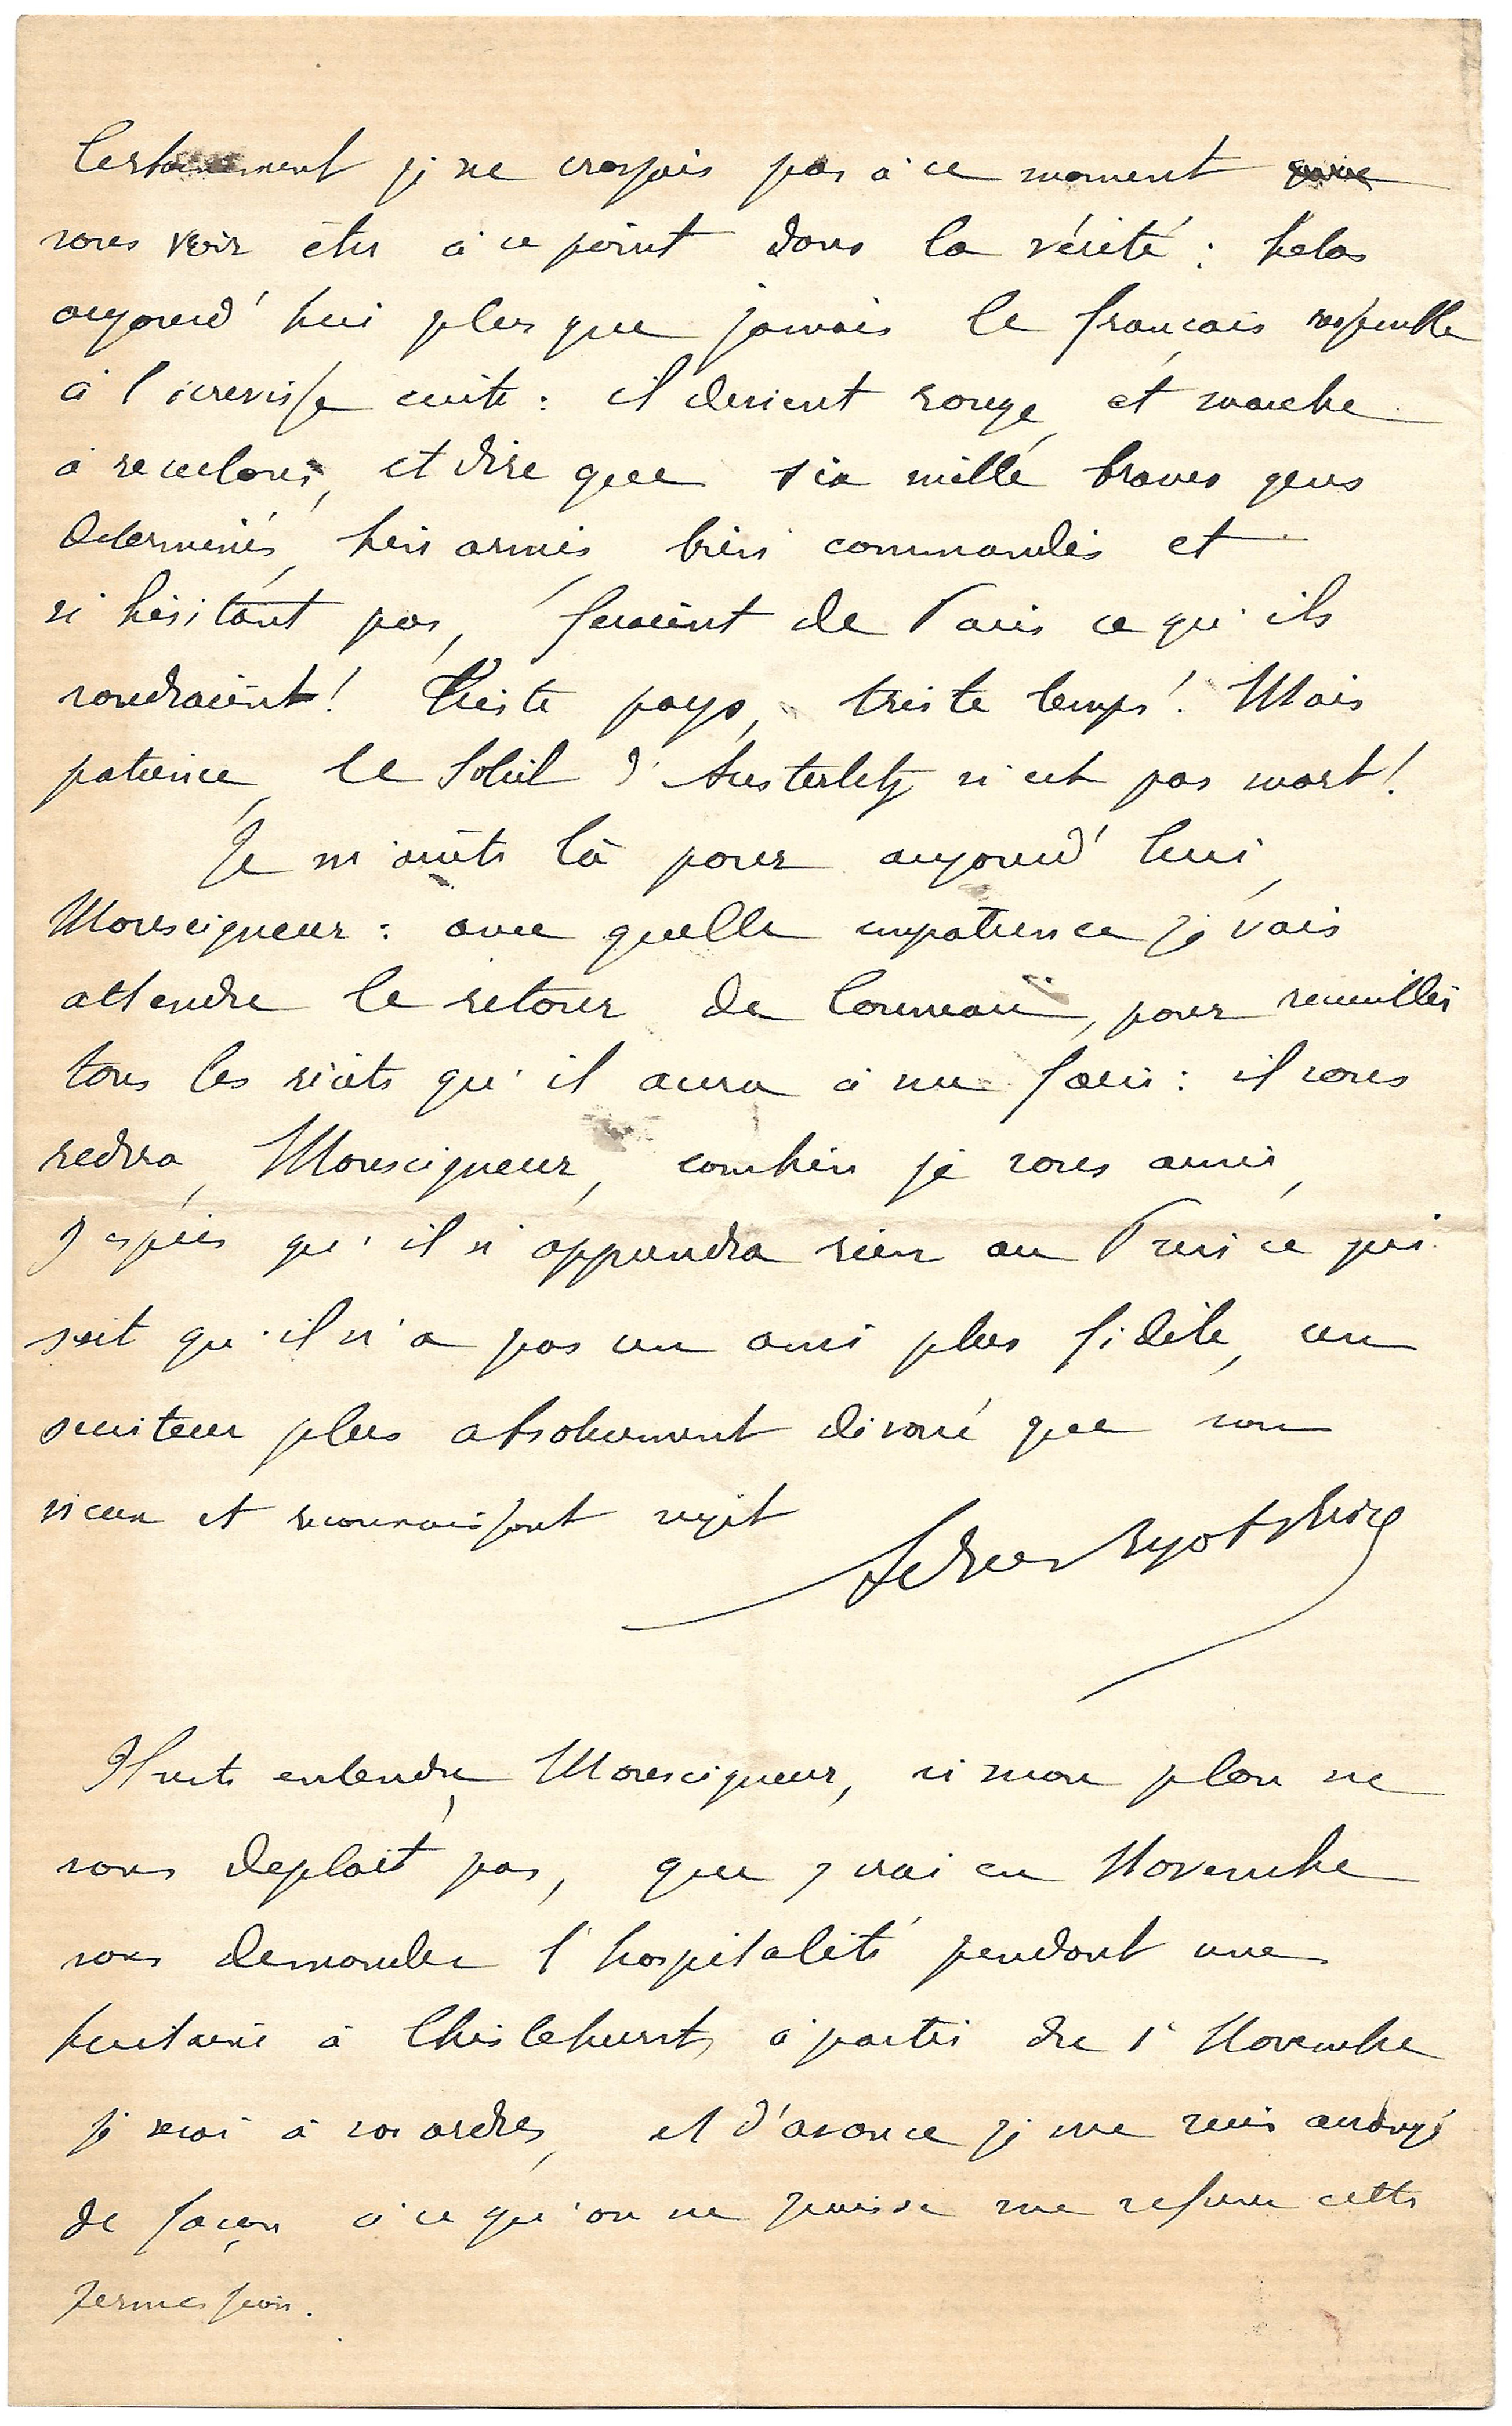 Certainement je ne croyais pas à ce moment
vous voir être à ce point dans la vérité : helas
aujourd'hui plus que jamais le français ressemble
à l'écrevisse cuite : il devient rouge et marche
à reculons, et dire que six mille braves gens
determinés, bien armés, bien commandés et
n'hésitant pas, feraient de Paris ce qu'ils
voudraient ! Triste pays, triste temps ! Mais
patience, le Soleil d'Austerlitz n'est pas mort !
Je m'arrête là pour aujourd'hui,
Monseigneur : avec quelle impatience je vais
attendre le retour de , pour recueillir
tous les récits qu'il aura à me faire : il vous
redira, Monseigneur, combien je vous aime,
j'espère qu'il n'apprendra rien au Prince qui
sait qu'il n'a pas un ami plus fidèle, un
serviteur plus absolument dévoué que son
vieux et reconnaissant sujet
Il est entendu, Monseigneur, si mon plan ne
vous deplait pas, que j'irai en Novembre
vous demander l'hospitalité pendant une
huitaine à Chislehurst, à partir du 1er Novembre
je serai à vos ordres, et d'avance je me suis arrangé
de façon à ce qu'on ne puisse me refuser cette
permission.